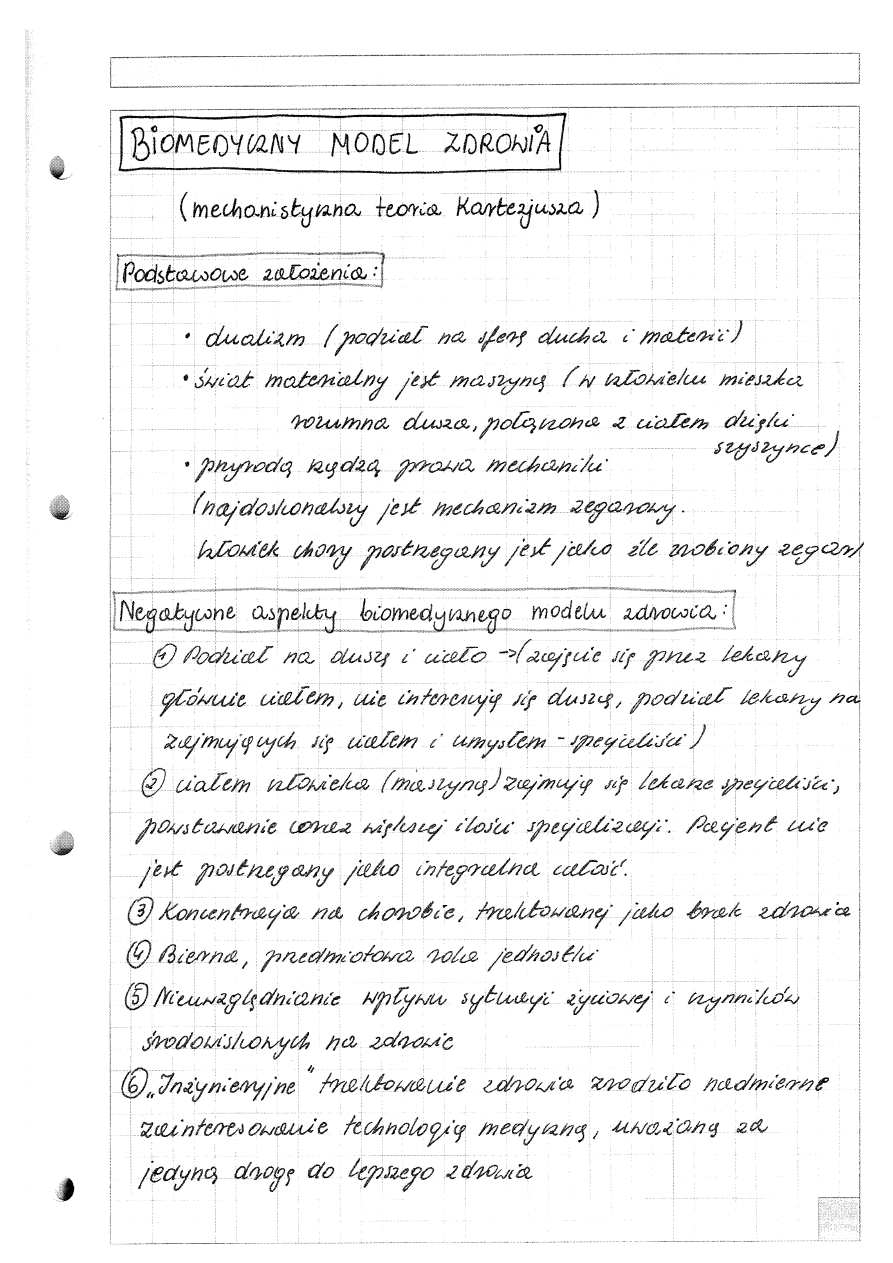 BIOMEDYCZNY MODEL ZDROWIA
(mechanistyczna teoria Kartezjusza)
Podstawowe założenia:
• dualizm (podział na sferę ducha i materii)
• świat materialny jest maszyną (w człowieku mieszka
rozumna dusza, połączona z ciałem dzięki
szyszynce)
• przyrodą rządzą prawa mechaniki
(najdoskonalszy jest mechanizm zegarowy.
Człowiek chory postrzegany jest jako źle zrobiony zegar)
Negatywne aspekty biomedycznego modelu zdrowia:
① Podział na duszę i ciało → (zajęcie się przez lekarzy
głównie ciałem, nie interesują się duszą, podział lekarzy na
zajmujących się ciałem i umysłem - specjaliści)
② ciałem człowieka (maszyną) zajmują się lekarze specjaliści,
powstawanie coraz większej ilości specjalizacji. Pacjent nie
jest postrzegany jako integralna całość.
③ Koncentracja na chorobie, traktowanej jako brak zdrowia
④ Bierna, przedmiotowa rola jednostki
⑤ Nieuwzględnianie wpływu sytuacji życiowej i czynników
środowiskowych na zdrowie
⑥ „Inżynieryjne" traktowanie zdrowia zrodziło nadmierne
zainteresowanie technologią medyczną, uważaną za
jedyną drogę do lepszego zdrowia